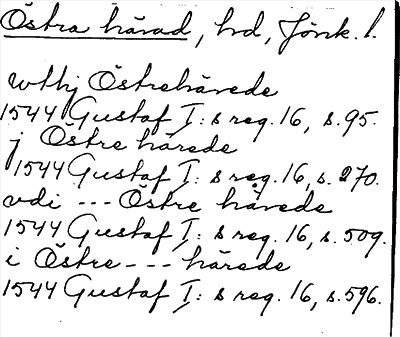 Östra härad, hd, Jönk. l.
wthj Östrehärede
1544 Gustaf I: s reg. 16, s. 95.
j Östre härede
1544 Gustaf I: s reg. 16, s. 270.
vdi --- Östre härede
1544 Gustaf I: s reg. 16, s. 509.
i Östre --- härede
1544 Gustaf I: s reg. 16, s. 596.